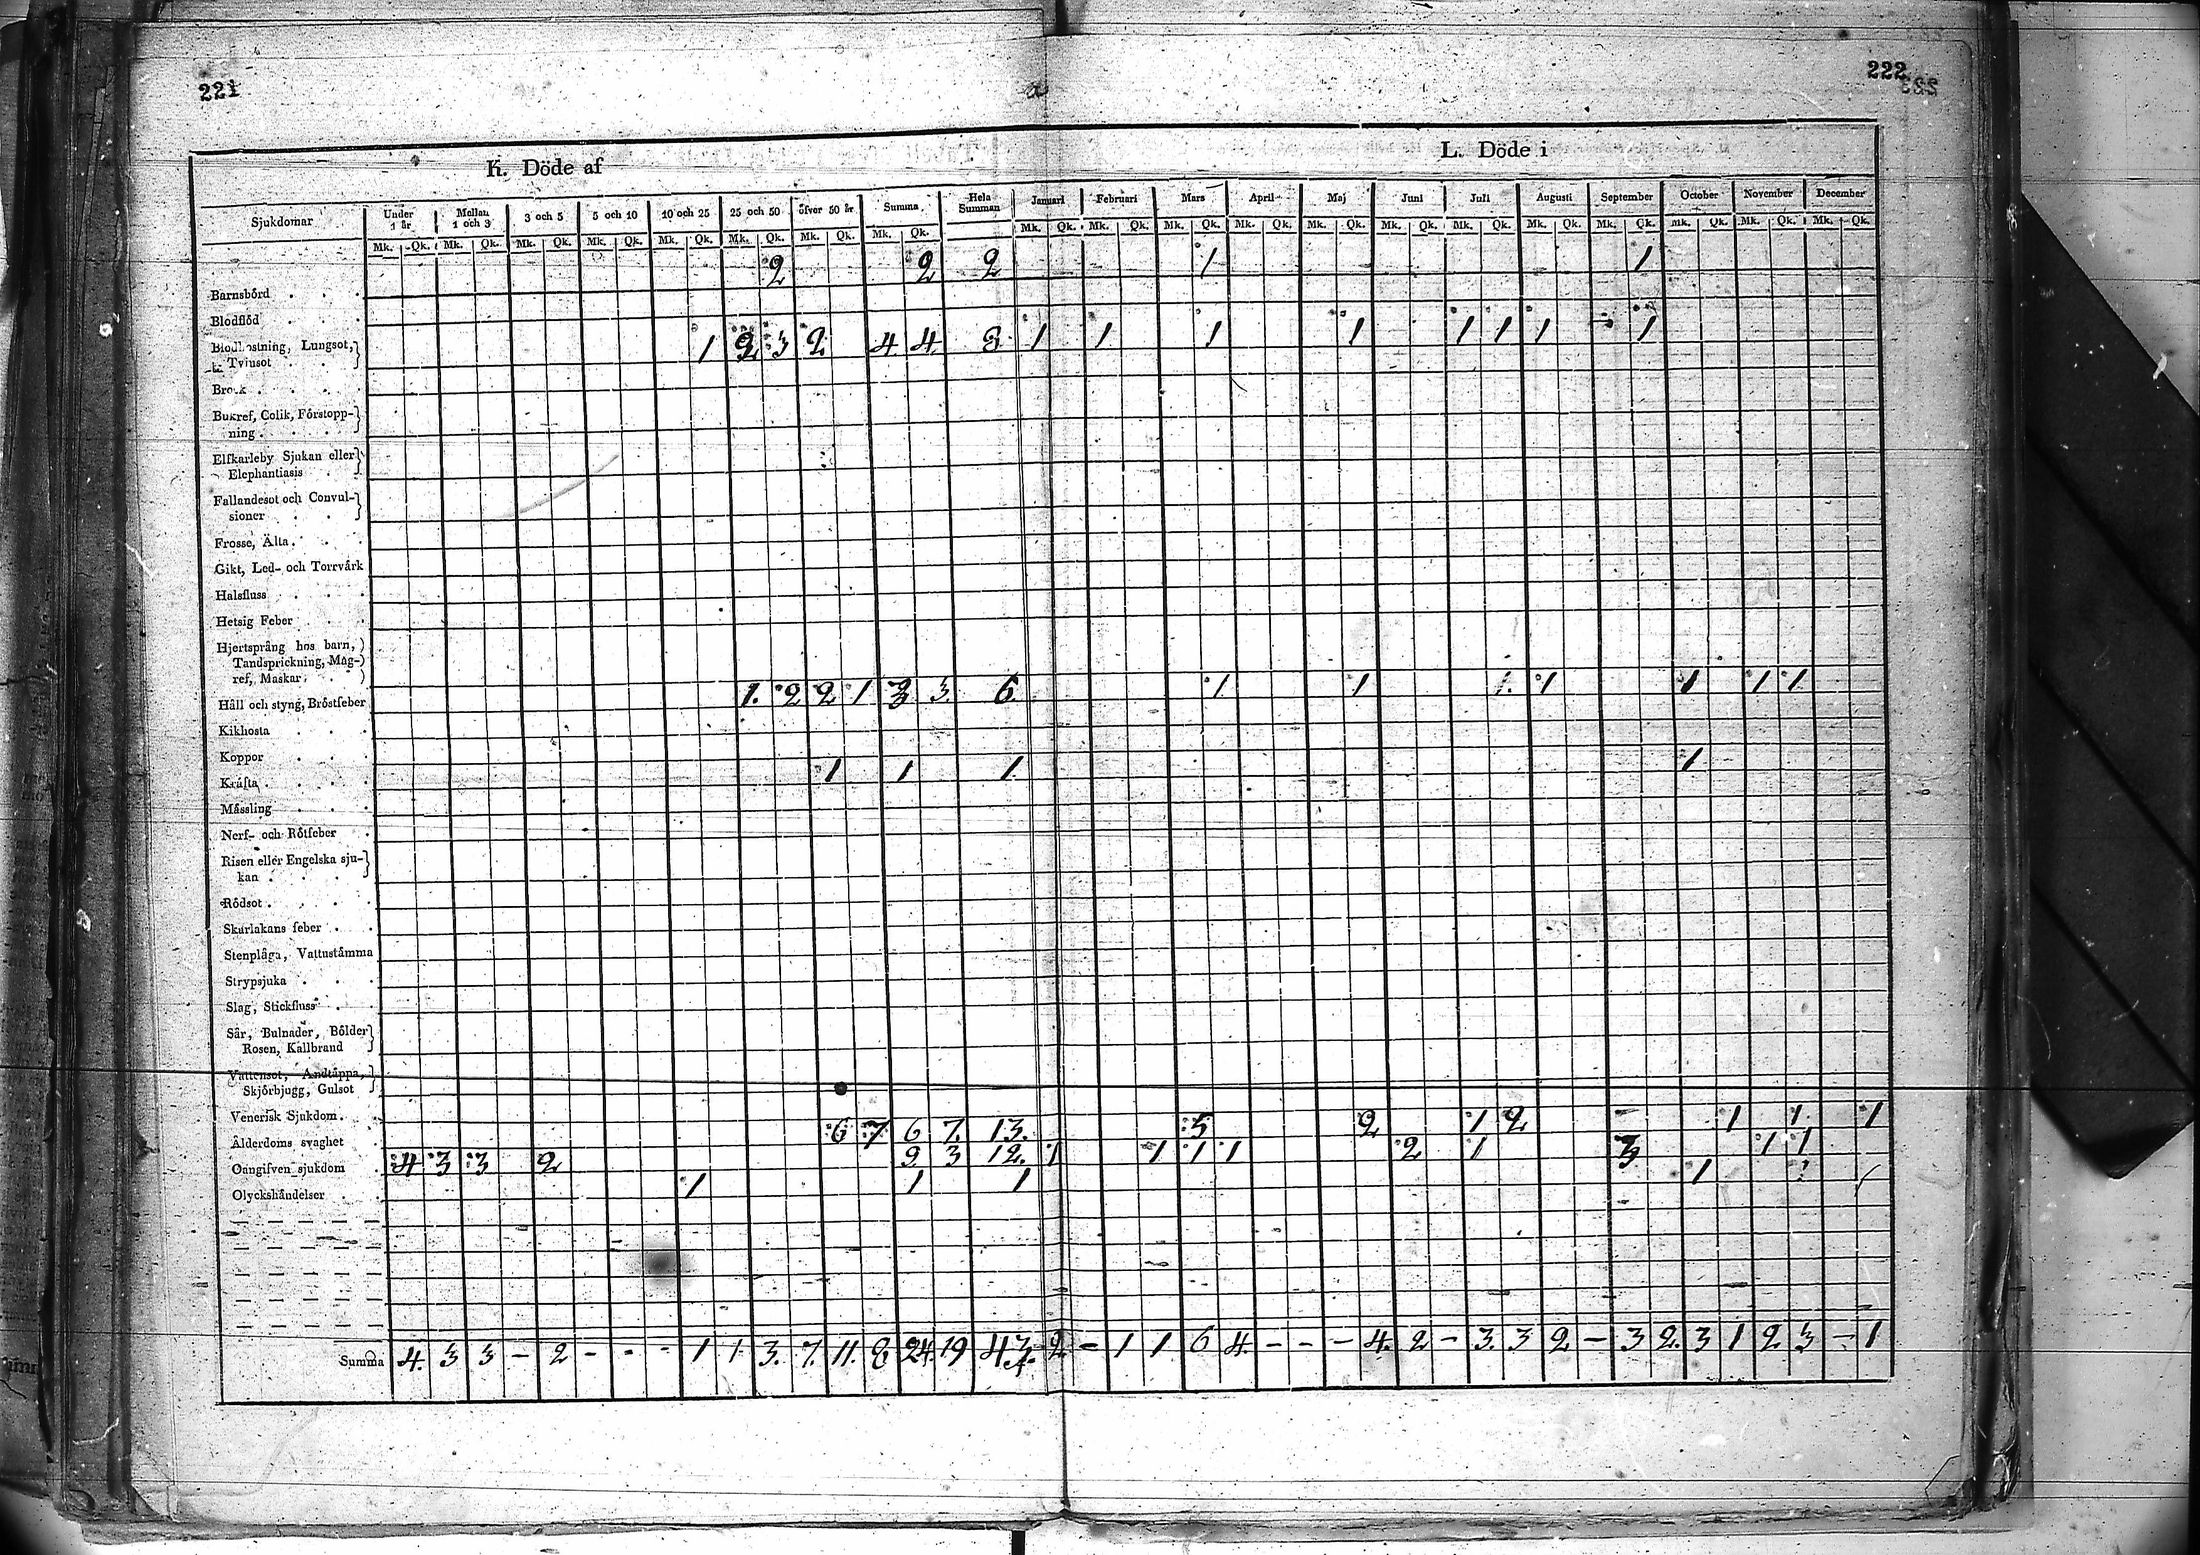 221
222
K. Döde af
L. Döde i
Sjukdomar Under 1 år Mellan 1 och 3 3 och 5 5 och 10 10 och 25 25 och 50 öfver 50 år Summa Hela Summan Januari Februari Mars April Maj Juni Juli Augusti September October November December
Mk. Qk. Mk. Qk. Mk. Qk. Mk. Qk. Mk. Qk. Mk. Qk. Mk. Qk. Mk. Qk. Mk. Qk. Mk. Qk. Mk. Qk. Mk. Qk. Mk. Qk. Mk. Qk. Mk. Qk. Mk. Qk. Mk. Qk. Mk. Qk. Mk. Qk. Mk. Qk.
Barnsbörd 2 2 2 1 1
Blodflöd
Lungsot,
Tvinsot 1 2 3 2 4 4 8 1 1 1 1 1 1 1 1
Bukref, Colik, Förstopp-
ning
Elfkarleby Sjukan eller
Elephantiasis
Fallandesot och Convul-
sioner
Frosse, Älta
Gikt, Led- och Torrvärk
Halsfluss
Hetsig Feber
Hjertsprång hos barn,
Tandsprickning, Mag-
ref, Maskar
Håll och styng, Bröstfeber 1. 2 2 1 3 3. 6. 1 1 1. 1 1 1 1
Kikhosta
Koppor
Kräfta 1 1 1. 1
Mässling
Nerf- och Rötfeber
Risen eller Engelska sju-
kan
Rödsot
Skarlakans feber
Stenplåga, Vattustämma
Strypsjuka
Slag, Stickfluss
Sår, Bulnader, Bölder
Rosen, Kallbrand
Vattensot, Andtäppa,
Skjörbjugg, Gulsot
Venerisk Sjukdom
Ålderdoms svaghet 6 7 6 7. 13. 5 2 1 2 1 1 1
Oangifven sjukdom 4 3 3 2 9 3 12. 1 1 1 1 2 1 3 1 1
Olyckshändelser 1 1 1 1
Summa 4. 3 3 - 2 - - - 1 1 3. 7. 11. 8. 24. 19 43. 2 - 1 1 6 4 - - - 4. 2 - 3. 3 2 - 3 2. 3 1 2 3 - 1